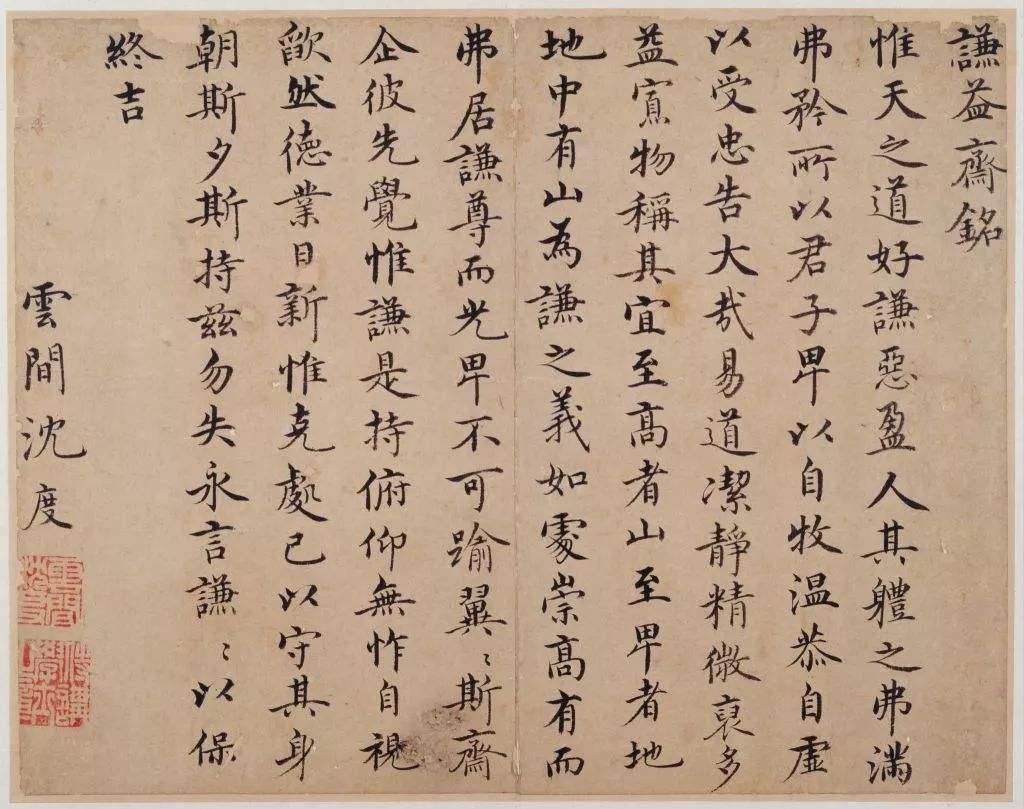 謙益齋銘
惟天之道好謙惡盈人其軆之弗滿
弗矜所以君子卑以自牧温恭自虛
以受忠告大哉易道潔靜精微裒多
益寡物稱其宜至高者山至卑者地
地中有山為謙之義如處崇高有而
弗居謙尊而光卑不可踰翼〻斯齋
企彼先覺惟謙是持俯仰無怍自視
歉然德業日新惟克處己以守其身
朝斯夕斯持兹勿失永言謙〻以保
終吉
雲間沈度